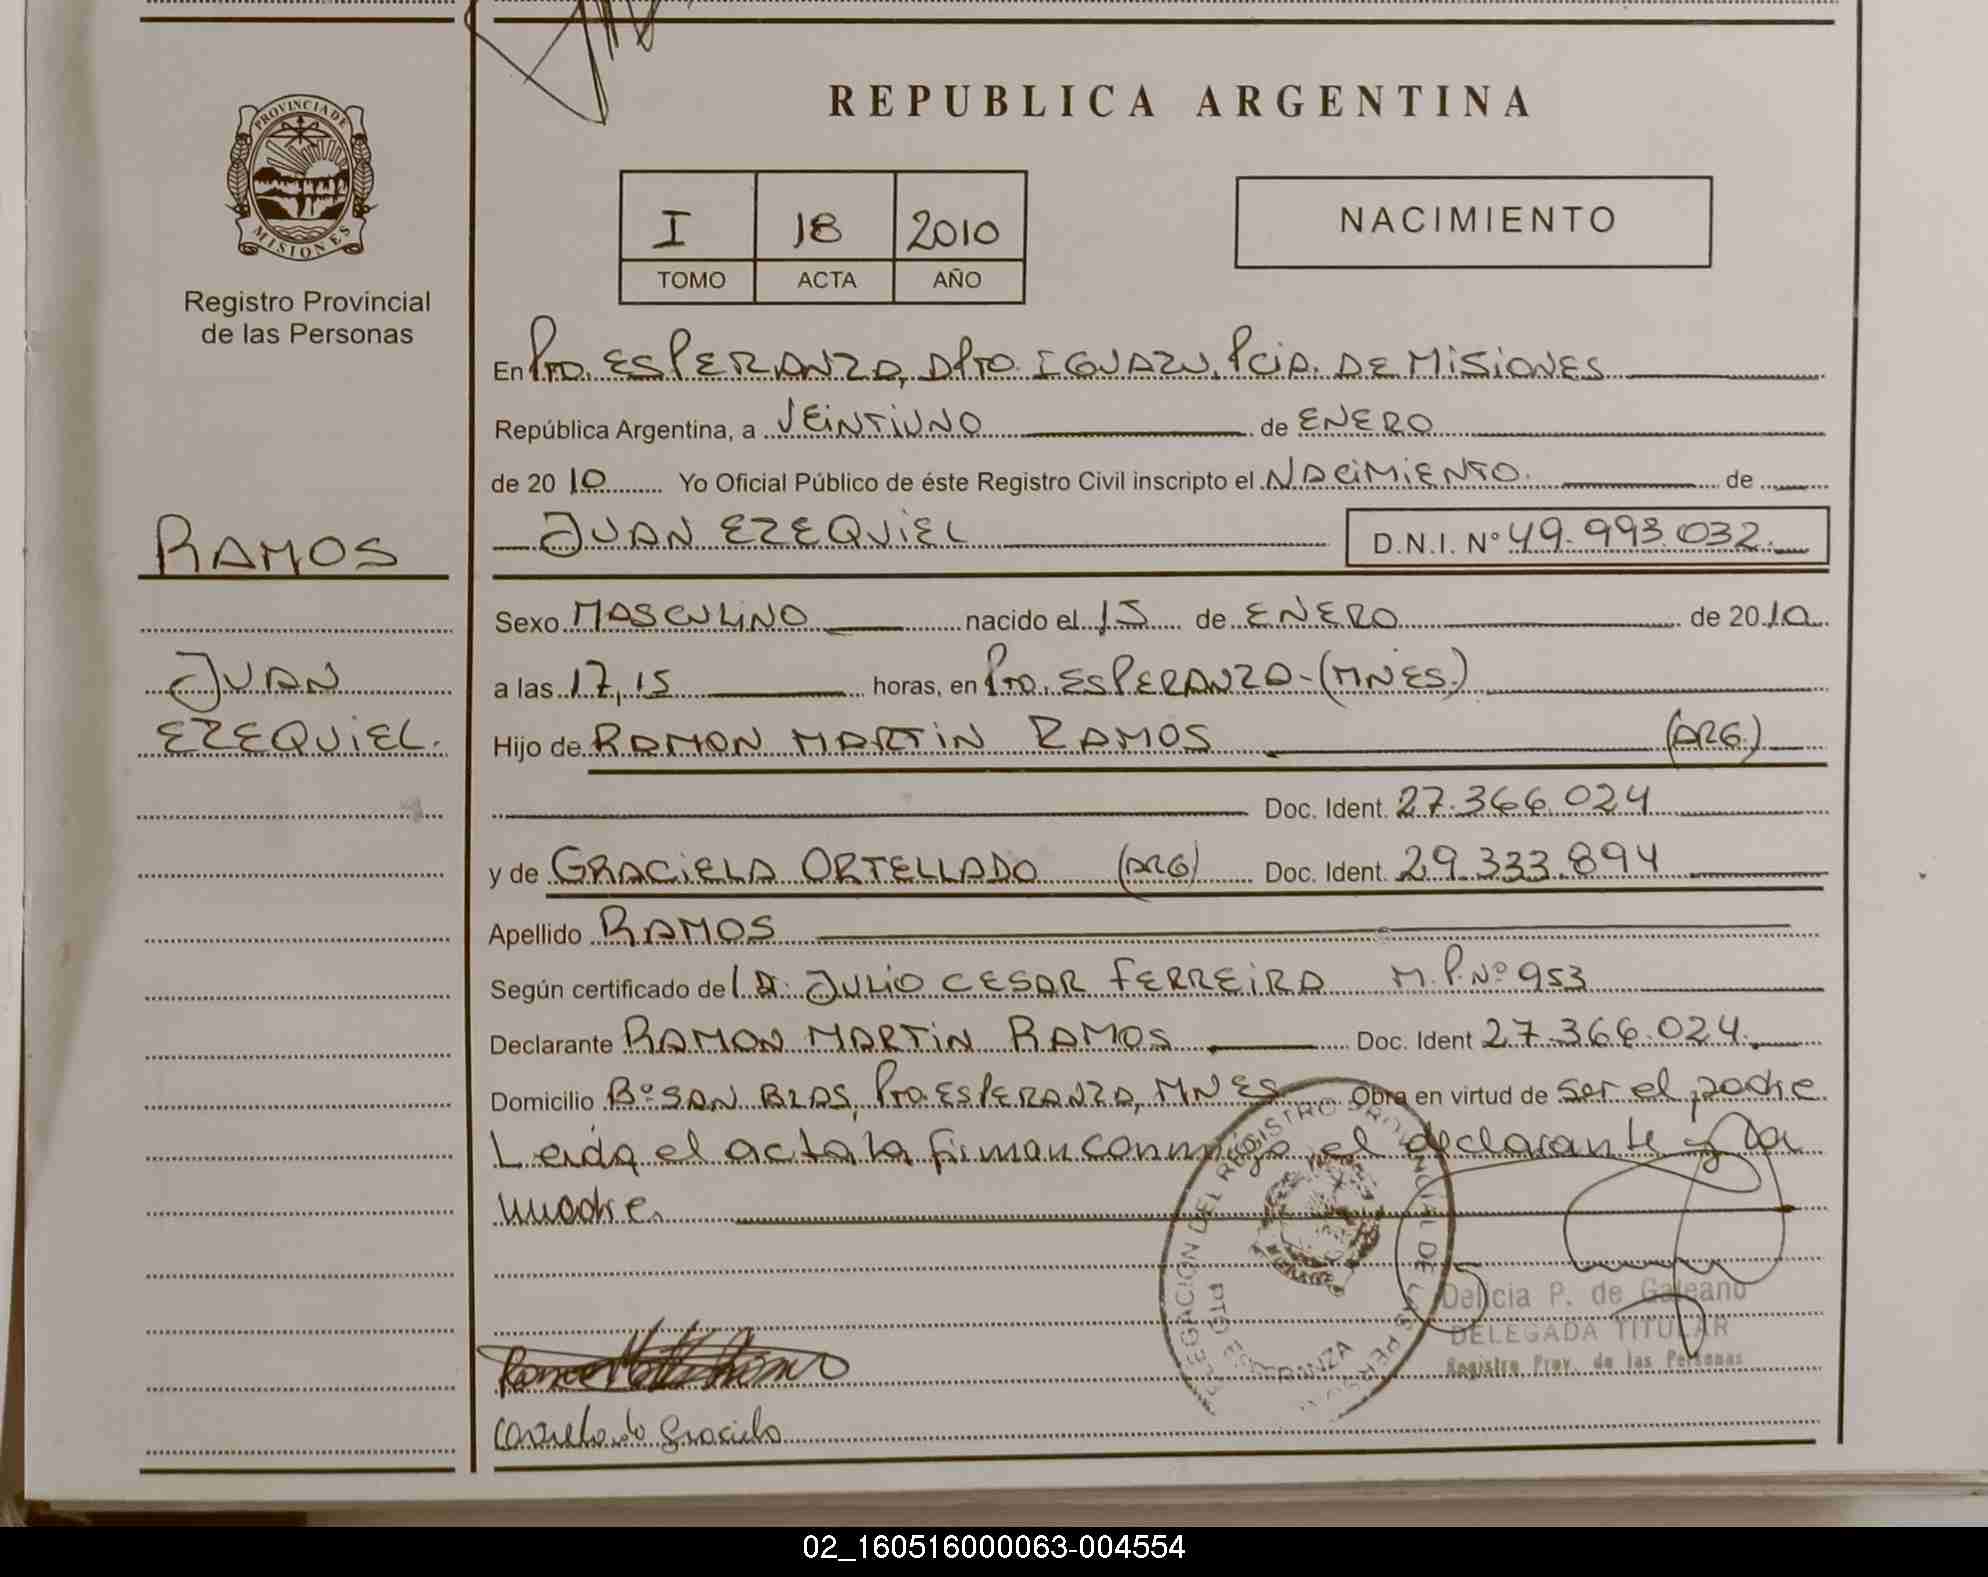 REPUBLICA ARGENTINA
PROVINCIA DE
MISIONES
Registro Provincial
de las Personas
I 18 2010
TOMO ACTA AÑO
NACIMIENTO
En Pto. ESPERANZA, DPTO. IGUAZU, PCIA. DE MISIONES
República Argentina, a VEINTIUNO de ENERO
de 2010 Yo Oficial Público de éste Registro Civil inscripto el NACIMIENTO. de
JUAN EZEQUIEL D.N.I. Nº 49.993.032.
RAMOS
JUAN
EZEQUIEL.
Sexo MASCULINO nacido el 15 de ENERO de 2010
a las 17,15 horas, en Pto. ESPERANZA-(MNES.)
Hijo de RAMON MARTIN RAMOS (ARG.)
Doc. Ident. 27.366.024
y de GRACIELA ORTELLADO (ARG) Doc. Ident. 29.333.894
Apellido RAMOS
Según certificado del Dr. JULIO CESAR FERREIRA M.P. Nº 953
Declarante RAMON MARTIN RAMOS Doc. Ident 27.366.024.
Domicilio Bº SAN BLAS, Pto. ESPERANZA, MNES Obra en virtud de ser el padre
Leida el acta la firman conmigo el declarante y la
madre.
DELEGACION DEL REGISTRO PROVINCIAL DE LAS PERSONAS
PTO ESPERANZA
Delicia P. de Galeano
DELEGADA TITULAR
Registro Prov. de las Personas
Graciela
02_160516000063-004554